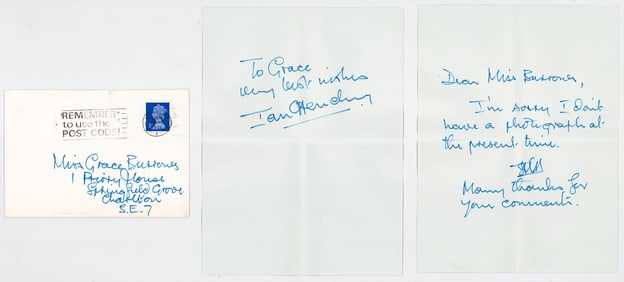 REMEMBER
to use the
POST CODE!
Miss Grace Burrows
1 Priory House
Springfield Grove
Charlton
S.E.7
To Grace
very best wishes
Ian Hendry
Dear Miss Burrows,
I'm sorry I don't
have a photograph at
the present time.
Many thanks for
your comments.